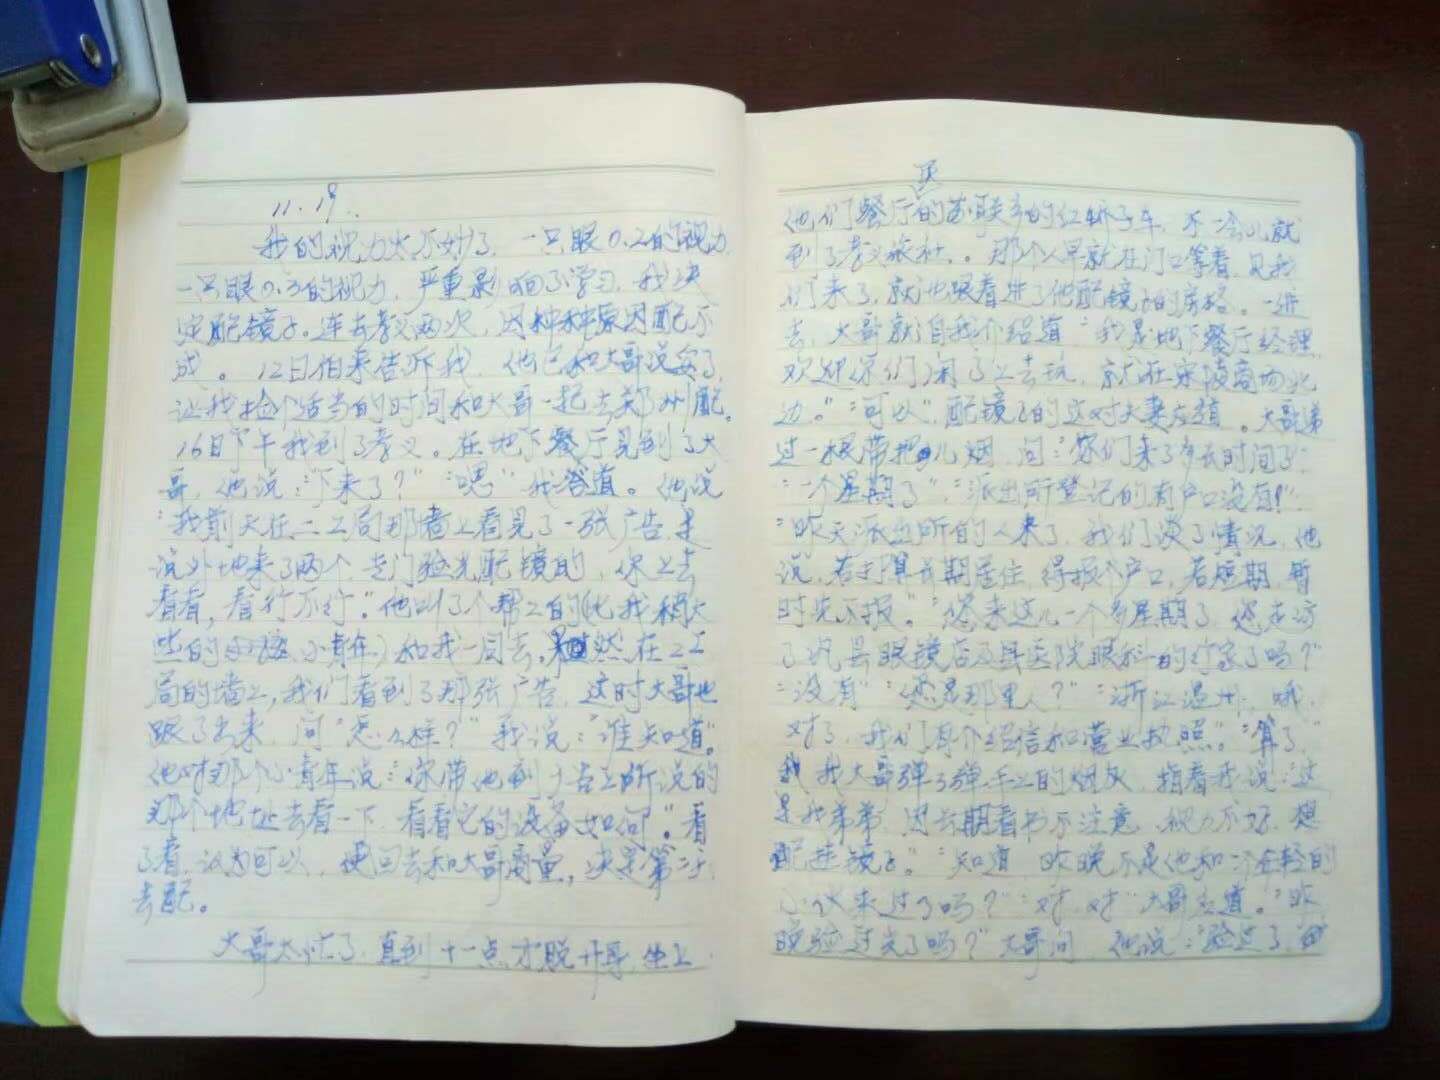 11.19.
我的视力太不妙了，一只眼0.2的视力，
一只眼0.3的视力，严重影响了学习，我决
定配镜子。连去孝义两次，因种种原因配不
成。12日伯来告诉我，他已和大哥说妥了，
让我捡个适当的时间和大哥一起去郑州配。
16日下午我到了孝义。在地下餐厅见到了大
哥，他说：“下来了？”“嗯”我答道。他说
“我前天在二工局那墙上看见了一张广告，是
说外地来了两个，专门验光配镜的，你上去
看看，看行不行”。他叫了个帮工的（比我稍大
些的小青年）和我一同去，果然，在二工
局的墙上，我们看到了那张广告，这时大哥也
跟了出来，问“怎么样？”我说：“谁知道”。
他对那个小青年说：“你带他到广告上所说的
那个地址去看一下，看看它的设备如何”。看
了看，认为可以，便回去和大哥商量，决定第二天
去配。
大哥太忙了，直到十一点才脱开身，坐上
他们餐厅的 的红轿子车，不一会儿就
到了孝义旅社。那个人早就在门口等着，见我
们来了，就也跟着进了他配镜的房格。一进
去，大哥就自我介绍道“我是地下餐厅经理，
欢迎你们闲了上去玩，就在宋陵商场北
边。”“可以”，配镜子的这对夫妻应道。大哥递
过一根带把儿烟，问：“你们来了多长时间了”：
“一个星期了”，“派出所登记的有户口没有？”
“昨天派出所的人来了，我们谈了情况，他
说，若打算长期居住，得报个户口，若短期，暂
时先不报。”“您来这儿一个多星期了，您走访
了巩县眼镜店及县医院眼科的行家了吗？”
“没有”“您是那里人？”“浙江温州，哦，
对了，我们有个绍信和营业执照。”“算了，”
我大哥弹了弹手上的烟灰，指着我说：“这
是我弟弟，因长期看书不注意，视力不好，想
配 镜子。”“知道，昨晚不是他和一个年轻的
小伙来过了吗？”“对，对”大哥应道。“昨
晚验过光了吗？”大哥问，他说：“验过了，